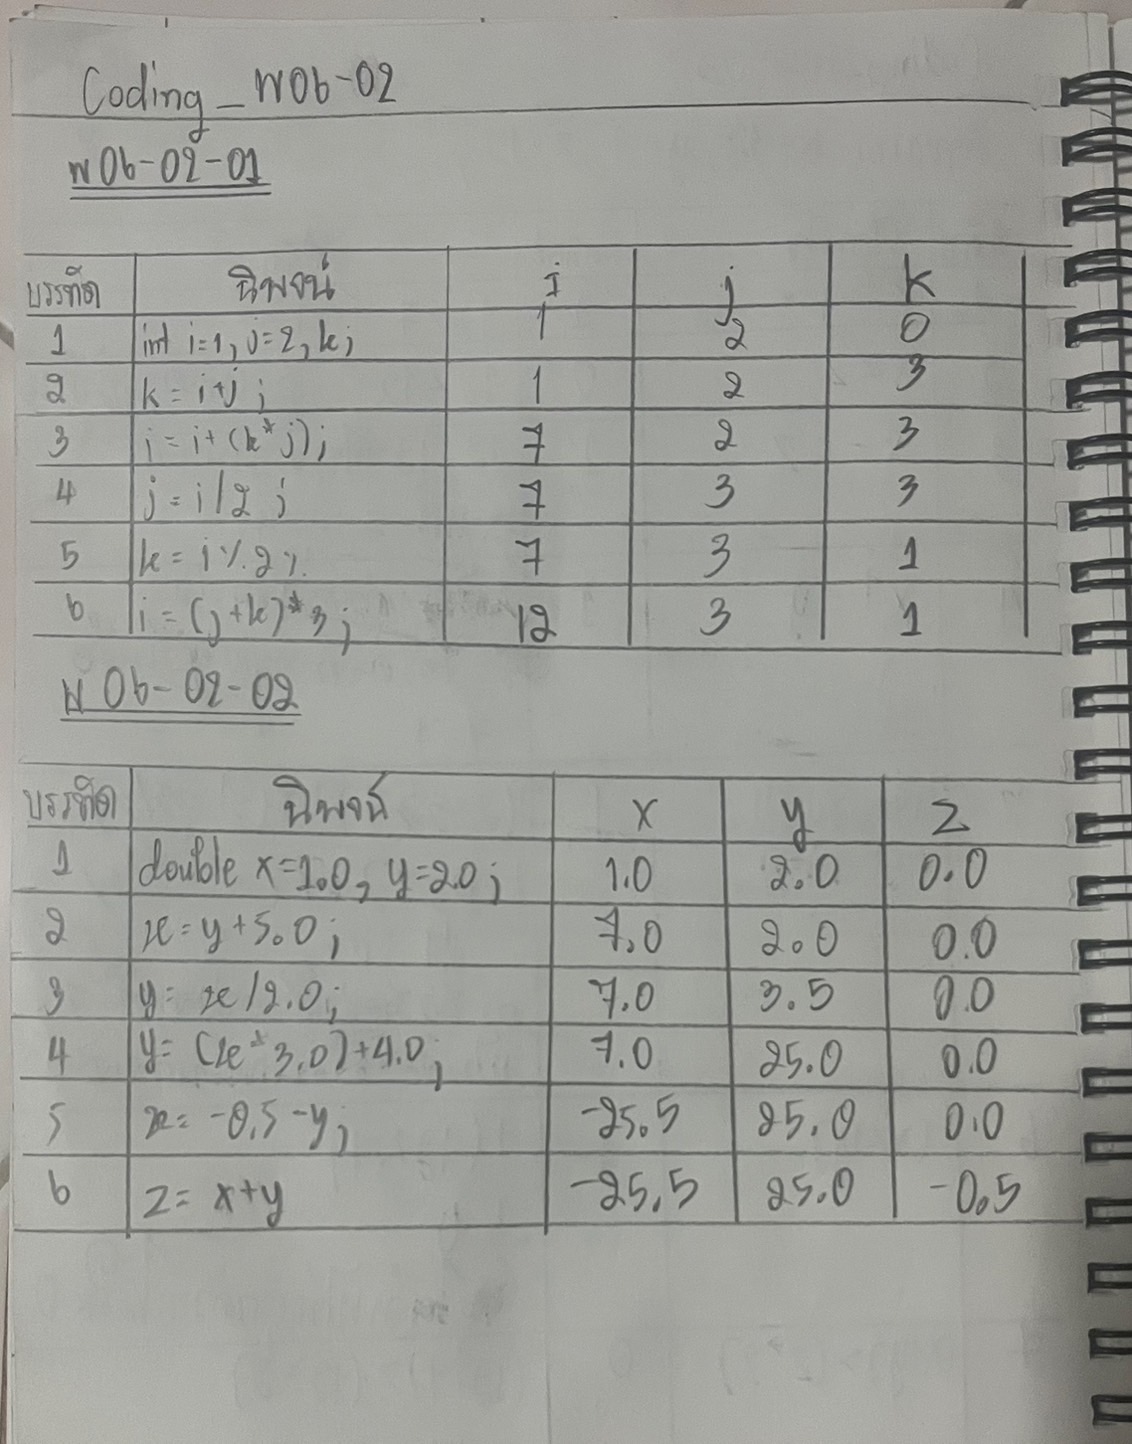 Coding_W06-02
W06-02-01
บรรทัด นิพจน์ i j k
1 int i=1, j=2, k; 1 2 0
2 k = i+j ; 1 2 3
3 i = i+ (k*j); 7 2 3
4 j = i/2 ; 7 3 3
5 k = i % 2 %. 7 3 1
6 i = (j+k)*3 ; 12 3 1
W06-02-02
บรรทัด นิพจน์ x y z
1 double x=1.0, y=2.0; 1.0 2.0 0.0
2 x=y+5.0; 7.0 2.0 0.0
3 y= x/2.0; 7.0 3.5 0.0
4 y= (x*3.0)+4.0; 7.0 25.0 0.0
5 x= -0.5-y; -25.5 25.0 0.0
6 z= x+y -25.5 25.0 -0.5